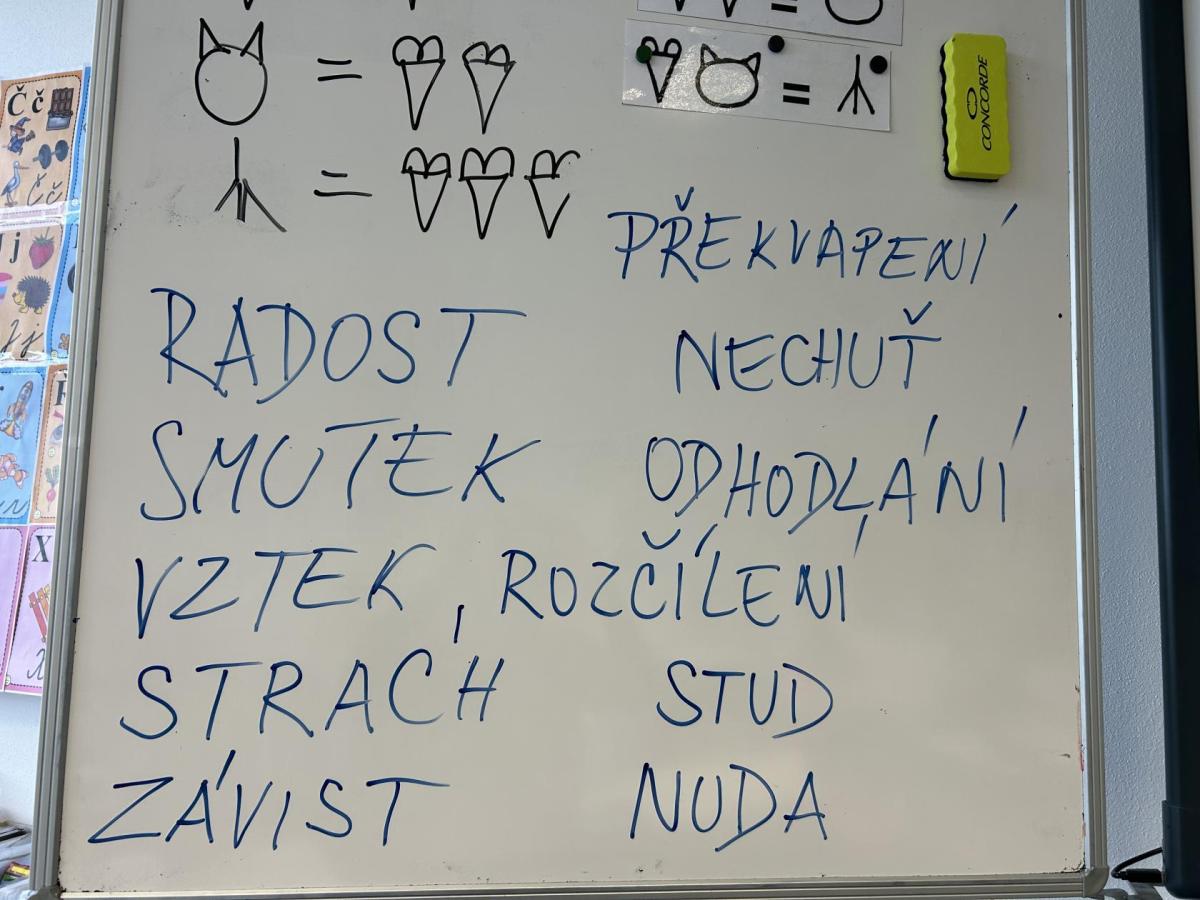 Č č
CONCORDE
Č č
j
J j
PŘEKVAPENÍ
RADOST
NECHUŤ
SMUTEK
ODHODLÁNÍ
VZTEK, ROZČÍLENÍ
X
STRACH
STUD
ZÁVIST
NUDA